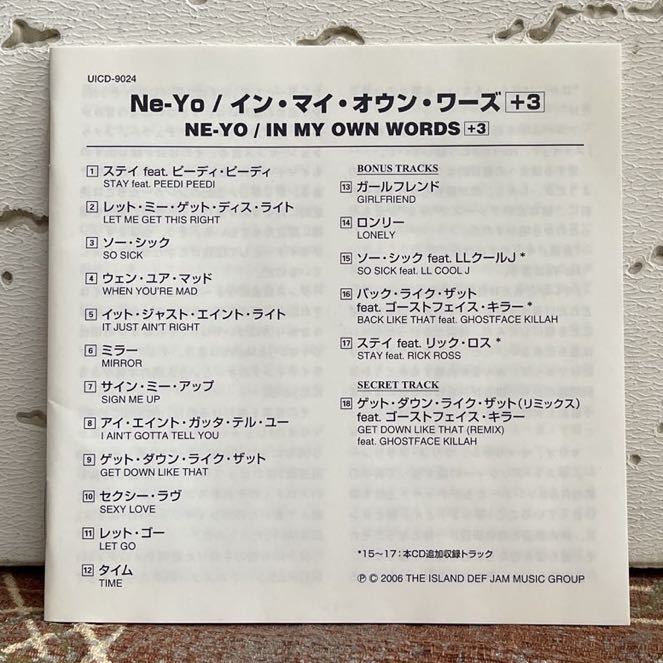 UICD-9024
Ne-Yo / イン・マイ・オウン・ワーズ +3
NE-YO / IN MY OWN WORDS +3
1 ステイ feat. ピーディ・ピーディ
STAY feat. PEEDI PEEDI
2 レット・ミー・ゲット・ディス・ライト
LET ME GET THIS RIGHT
3 ソー・シック
SO SICK
4 ウェン・ユア・マッド
WHEN YOU'RE MAD
5 イット・ジャスト・エイント・ライト
IT JUST AIN'T RIGHT
6 ミラー
MIRROR
7 サイン・ミー・アップ
SIGN ME UP
8 アイ・エイント・ガッタ・テル・ユー
I AIN'T GOTTA TELL YOU
9 ゲット・ダウン・ライク・ザット
GET DOWN LIKE THAT
10 セクシー・ラヴ
SEXY LOVE
11 レット・ゴー
LET GO
12 タイム
TIME
BONUS TRACKS
13 ガールフレンド
GIRLFRIEND
14 ロンリー
LONELY
15 ソー・シック feat. LLクールJ *
SO SICK feat. LL COOL J
16 バック・ライク・ザット
feat. ゴーストフェイス・キラー *
BACK LIKE THAT feat. GHOSTFACE KILLAH
17 ステイ feat. リック・ロス *
STAY feat. RICK ROSS
SECRET TRACK
18 ゲット・ダウン・ライク・ザット(リミックス)
feat. ゴーストフェイス・キラー
GET DOWN LIKE THAT (REMIX)
feat. GHOSTFACE KILLAH
*15～17：本CD追加収録トラック
Ⓟ © 2006 THE ISLAND DEF JAM MUSIC GROUP